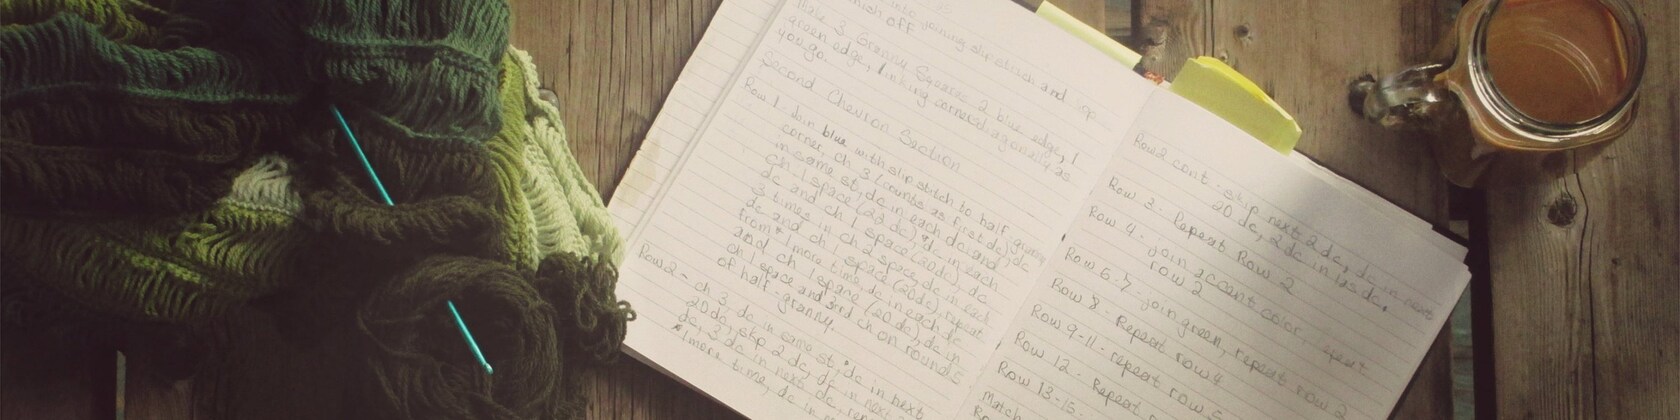 into joining slip stitch and
which off
Make 3 Granny Squares 2 blue edge, 1
green edge, linking corners diagonally as
you go.
Second Chevron Section
Row 1 - Join blue with slip stitch to half granny
corner, ch 3 (counts as first dc), dc
in same st, dc in each dc and
ch 1 space (23 dc), in each
dc and ch 1 space (20 dc), dc
3 times in ch 2 space, dc in each
dc and ch 1 space (20 dc), repeat
from * 1 more time, dc in each dc
and ch 1 space (20 dc), dc in
ch 1 space and 3rd ch on rounds
of half-granny.
Row 2 - ch 3, dc in same st, *dc in next
20 dc, skp 2 dc, dc in next
dc, 3 dc in next dc, rep
1 more time, dc in
Row 2 cont - skip next 2 dc, dc in next
20 dc, 2 dc in last dc.
Row 3 - Repeat Row 2
Row 4 - join accent color, repeat
row 2
Row 6-7 - join green, repeat row 2
Row 8 - Repeat row 4
Row 9-11 - repeat row 5
Row 12 - Repeat
Row 13-15 -
Match